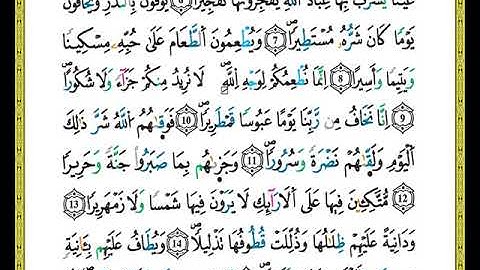 عَيْنًا يَشْرَبُ بِهَا عِبَادُ اللَّهِ يُفَجِّرُونَهَا تَفْجِيرًا ۝6 يُوفُونَ بِالنَّذْرِ وَيَخَافُونَ
يَوْمًا كَانَ شَرُّهُ مُسْتَطِيرًا ۝7 وَيُطْعِمُونَ الطَّعَامَ عَلَىٰ حُبِّهِ مِسْكِينًا
وَيَتِيمًا وَأَسِيرًا ۝8 إِنَّمَا نُطْعِمُكُمْ لِوَجْهِ اللَّهِ لَا نُرِيدُ مِنكُمْ جَزَاءً وَلَا شُكُورًا
۝9 إِنَّا نَخَافُ مِن رَّبِّنَا يَوْمًا عَبُوسًا قَمْطَرِيرًا ۝10 فَوَقَىٰهُمُ اللَّهُ شَرَّ ذَٰلِكَ
الْيَوْمِ وَلَقَّىٰهُمْ نَضْرَةً وَسُرُورًا ۝11 وَجَزَىٰهُم بِمَا صَبَرُوا جَنَّةً وَحَرِيرًا
۝12 مُتَّكِـِٔينَ فِيهَا عَلَى الْأَرَائِكِ لَا يَرَوْنَ فِيهَا شَمْسًا وَلَا زَمْهَرِيرًا ۝13
وَدَانِيَةً عَلَيْهِمْ ظِلَٰلُهَا وَذُلِّلَتْ قُطُوفُهَا تَذْلِيلًا ۝14 وَيُطَافُ عَلَيْهِم بِـَٔانِيَةٍ